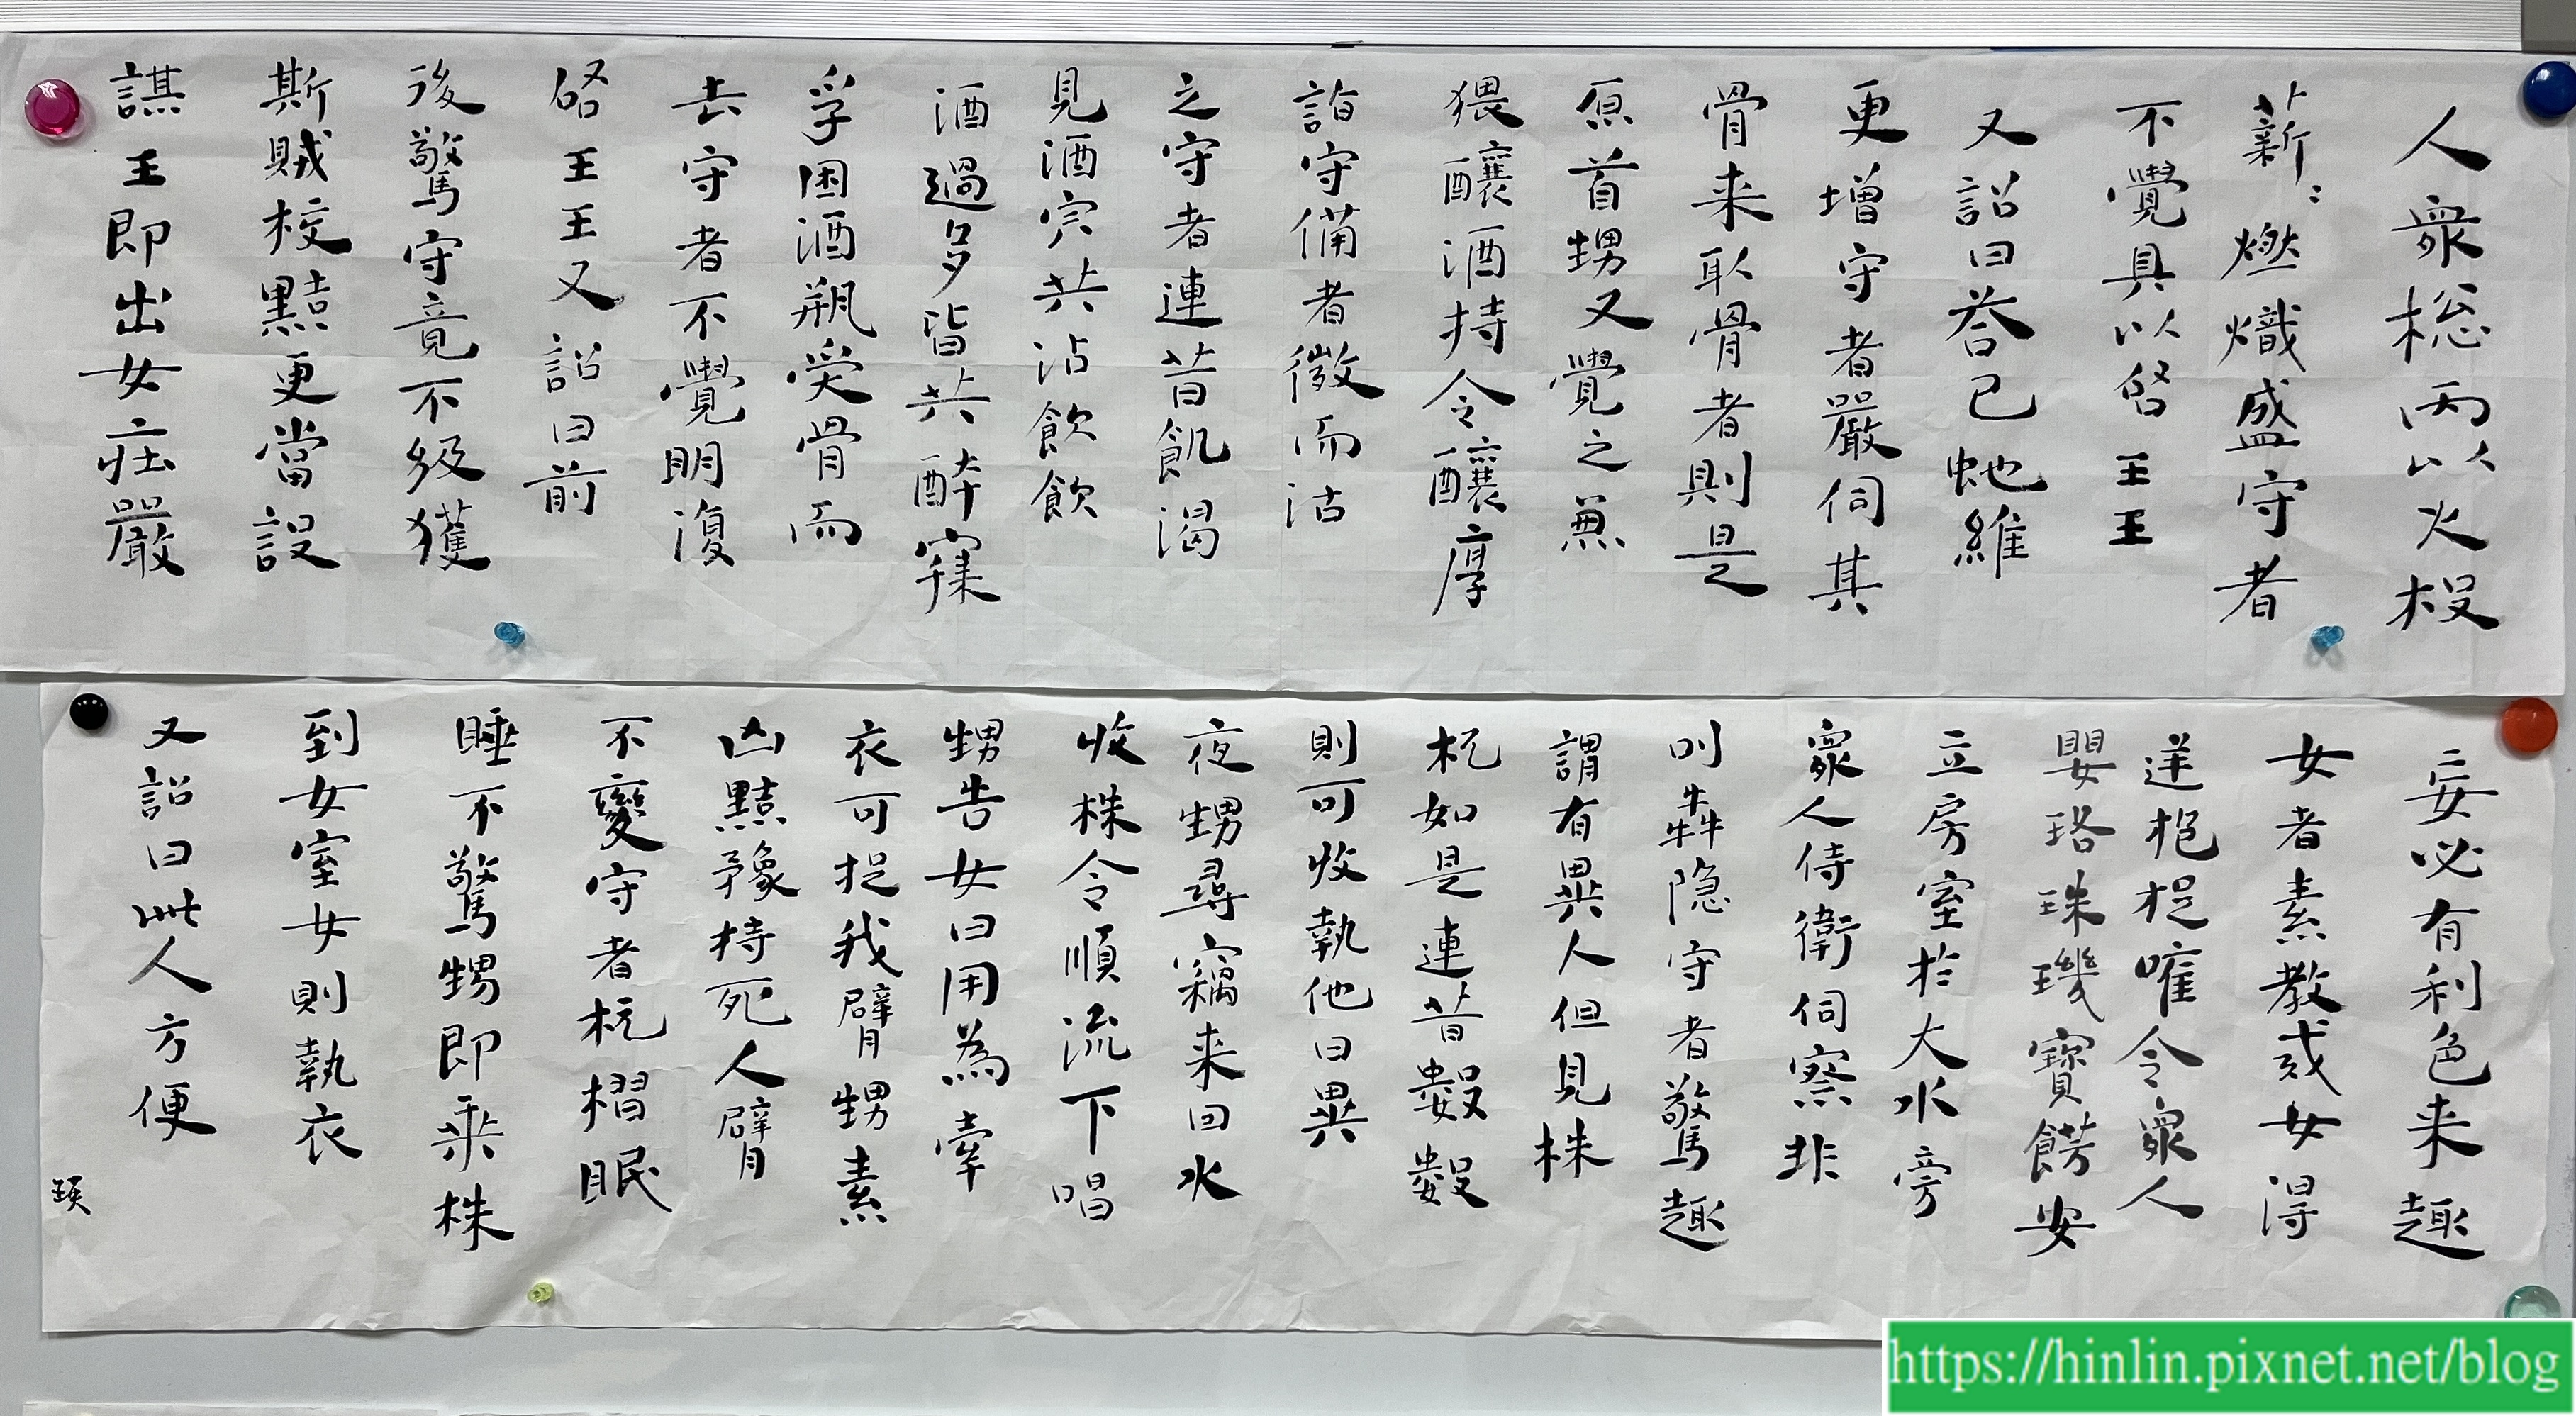 人衆総兩以火投
薪〻燃熾盛守者
不覺具以啓王王
又詔曰荅已虵維
更增守者嚴伺其
骨来取骨者則是
原首甥又覺之兼
猥釀酒持令釀厚
詣守備者微而沽
之守者連昔飢渴
見酒宍共沾飲飲
酒過多皆共醉寐
孚困酒瓶受骨而
去守者不覺明復
啓王王又詔曰前
後驚守竟不級獲
斯賊校黠更當設
謀王即出女莊嚴
安必有利色来趣
女者素教或女得
逆抱捉唯令衆人
嬰珞珠璣寶餝安
立房室於大水旁
衆人侍衛伺察非
叫犇隱守者驚趣
謂有異人但見株
杌如是連昔數數
則可收執他日異
夜甥尋竊来因水
收株令順流下唱
甥告女曰用為牽
衣可捉我臂甥素
凶黠豫持死人臂
不變守者杌㨨眠
睡不驚甥即乘株
到女室女則執衣
又詔曰此人方便
瑛
https://hinlin.pixnet.net/blog